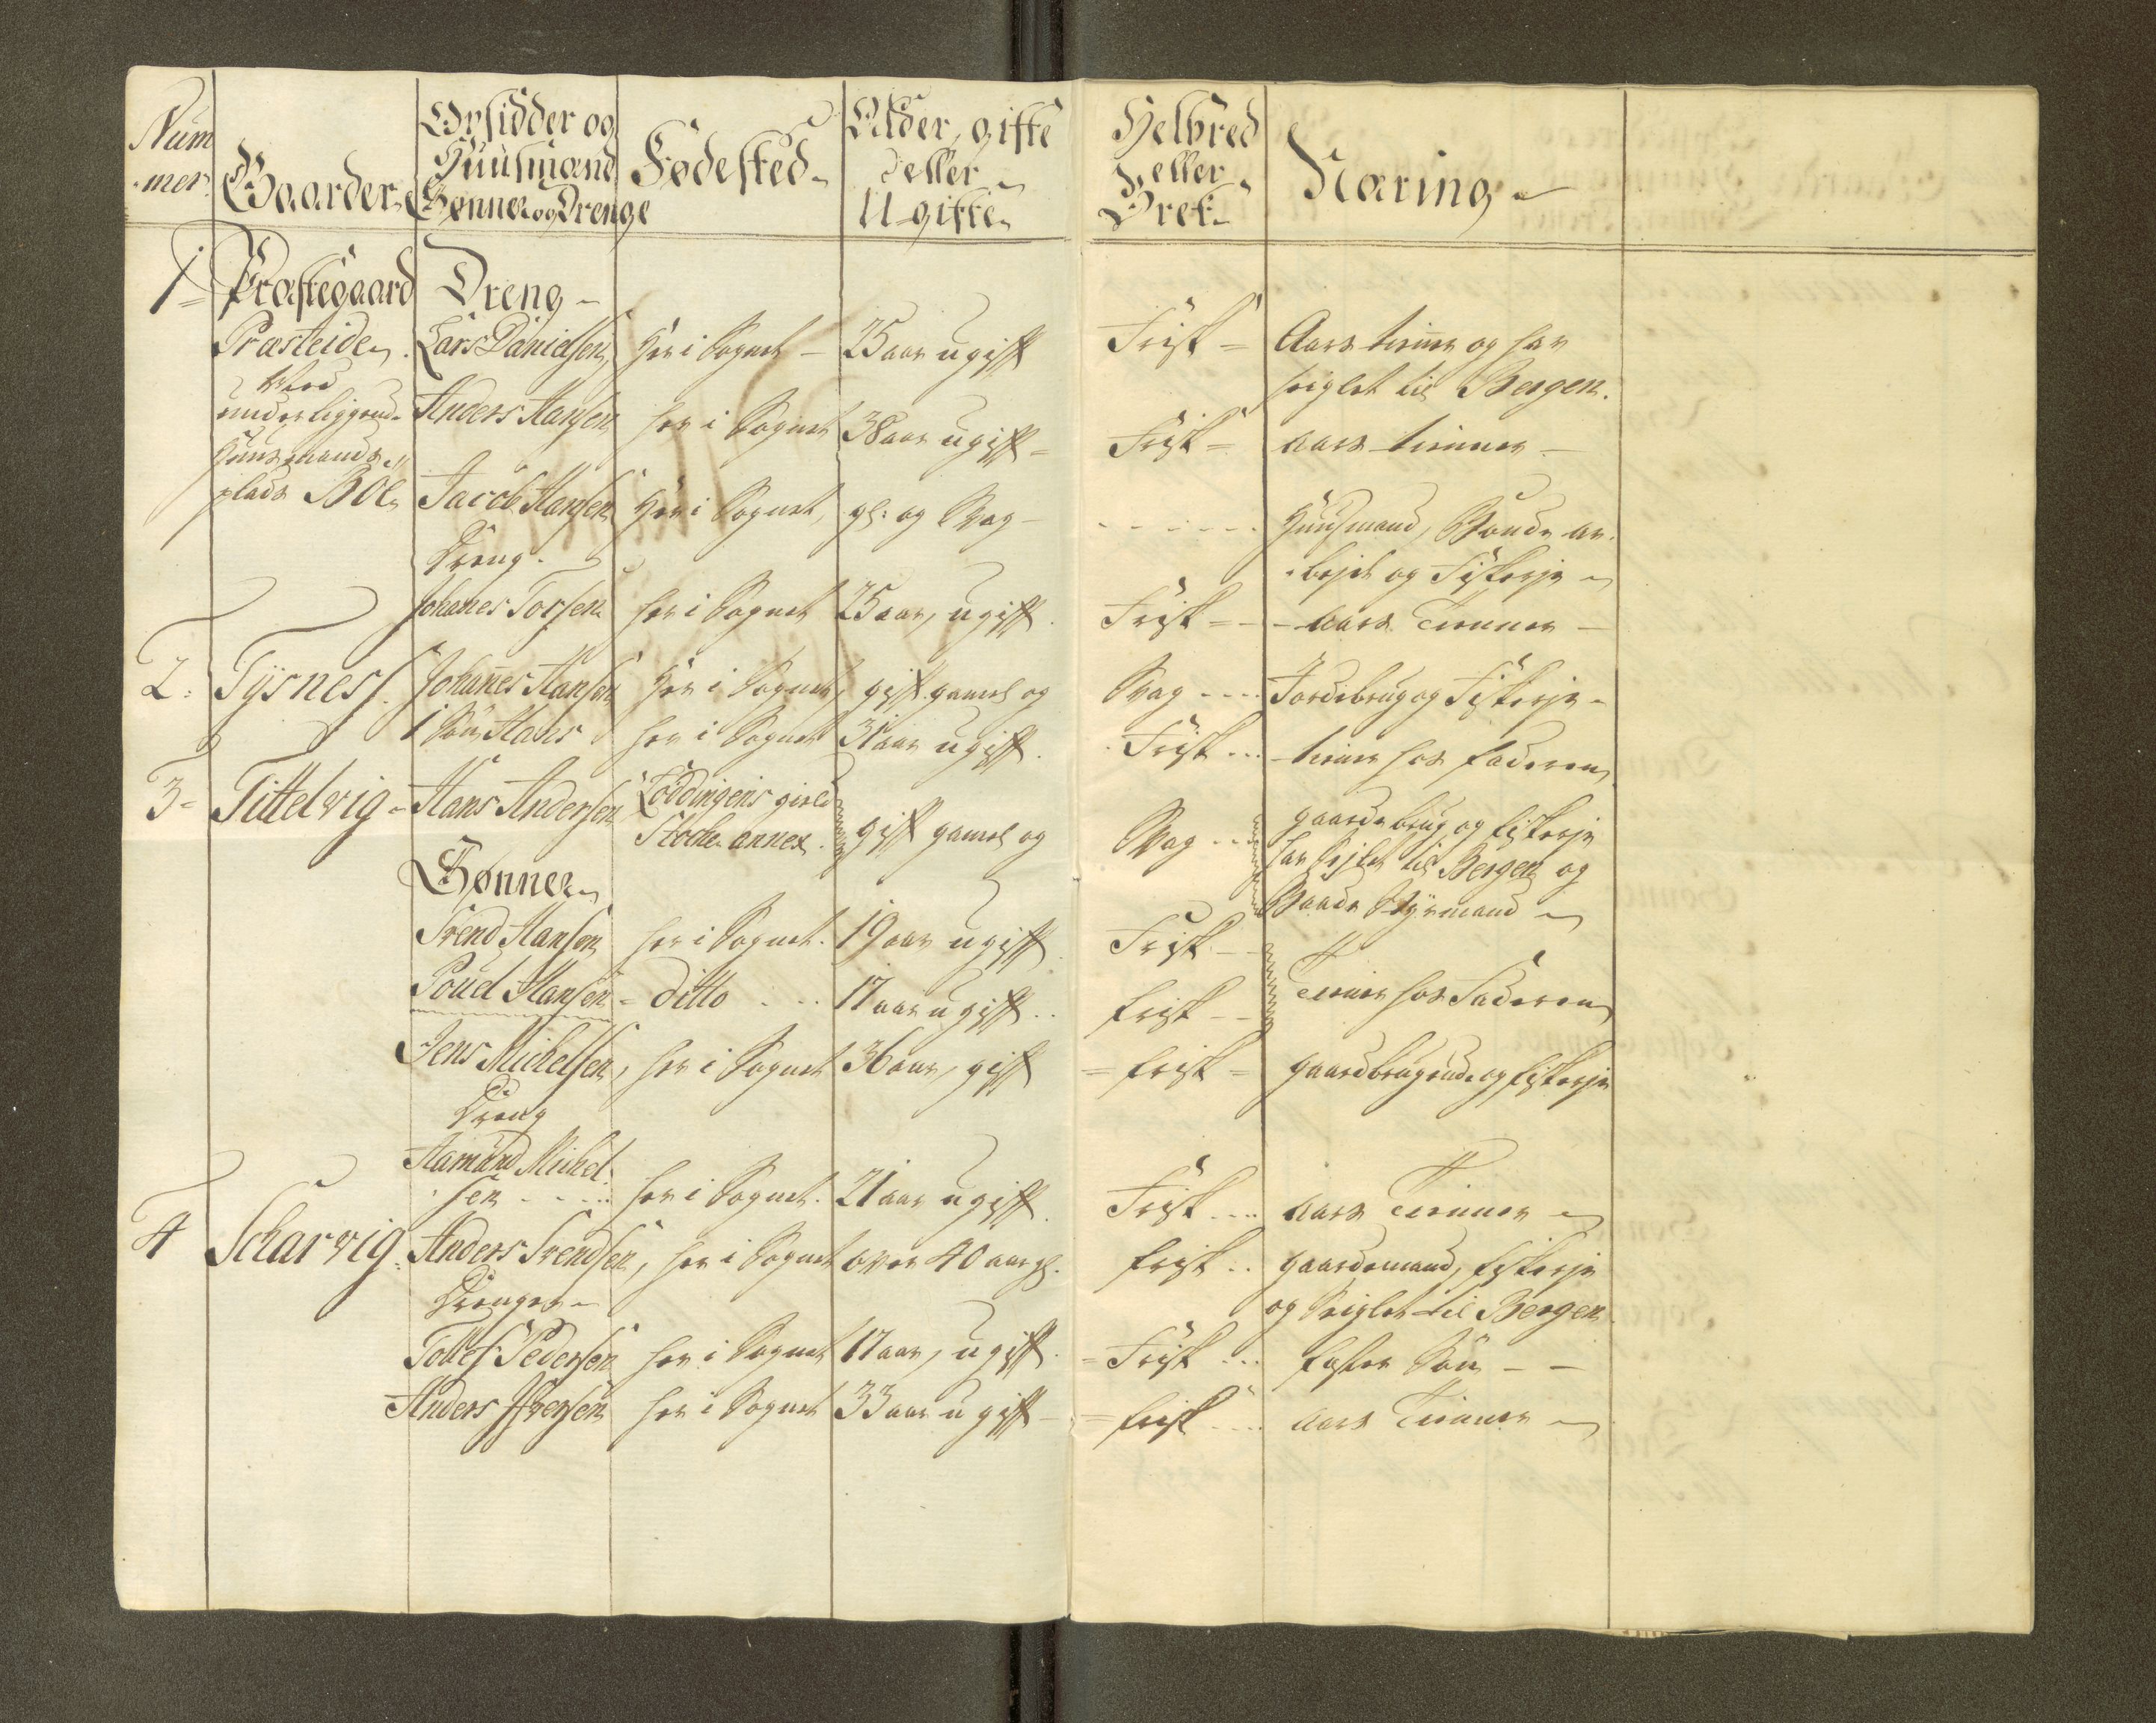 Num
mer.
Gaarder
Opsidder og
Huusmænd
Sønner og Drenge
Fødested
Alder, gifte
eller
Ugifte
Helbred
eller
Bræk
Næring
1 Præstegaard Dreng
Præsteide Lars Danielsen Her i Sognet 25 aar ugift Frisk Aars tienner og har
seiglet til Bergen.
med
underliggende Anders Hansen her i Sognet 38 aar ugift Frisk aars tienner
Huusmands
plads Böl Jacob Hansen Her i Sognet, gl: og Svag Huusmand, Bonde ar
bejde og Fiskerje
Dreng.
Johanes Torsen her i Sognet 25 aar, ugift Frisk aars Tienner
2: Tÿsness. Johanes Hansen Her i Sognet, gift gamel og Svag Jordebrug og Fiskerje
1 Søn Hans her i Sognet 31 aar ugift. Frisk tiener hos faderen
3 Tittelvig Hans Andersen Loddingens gield
Stoche annex. gift gamel og Svag gaardebrug og fiskerje
har sejlet til Bergen og
Baade Styrmand
Sønner
Svend Hansen her i Sognet. 19 aar ugift Frisk
Tiener hos Faderen
Poul Hansen ditto 17 aar ugift frisk
Jens Michelsen, her i Sognet 36 aar, gift frisk gaardbrugende og fiskerje
Dreng
Aamund Michel
sen her i Sognet. 21 aar ugift. Frisk aars Tienner
4 Scharvig: Anders Svendsen, her i Sognet over 40 aar gl. frisk gaardemand, fiskerje
og Seiglet til Bergen
Drenger
Tollef Pedersen her i Sognet 17 aar, ugift. Frisk foster Søn
Anders Iversen her i Sognet 33 aar ugift frisk aars Tienner